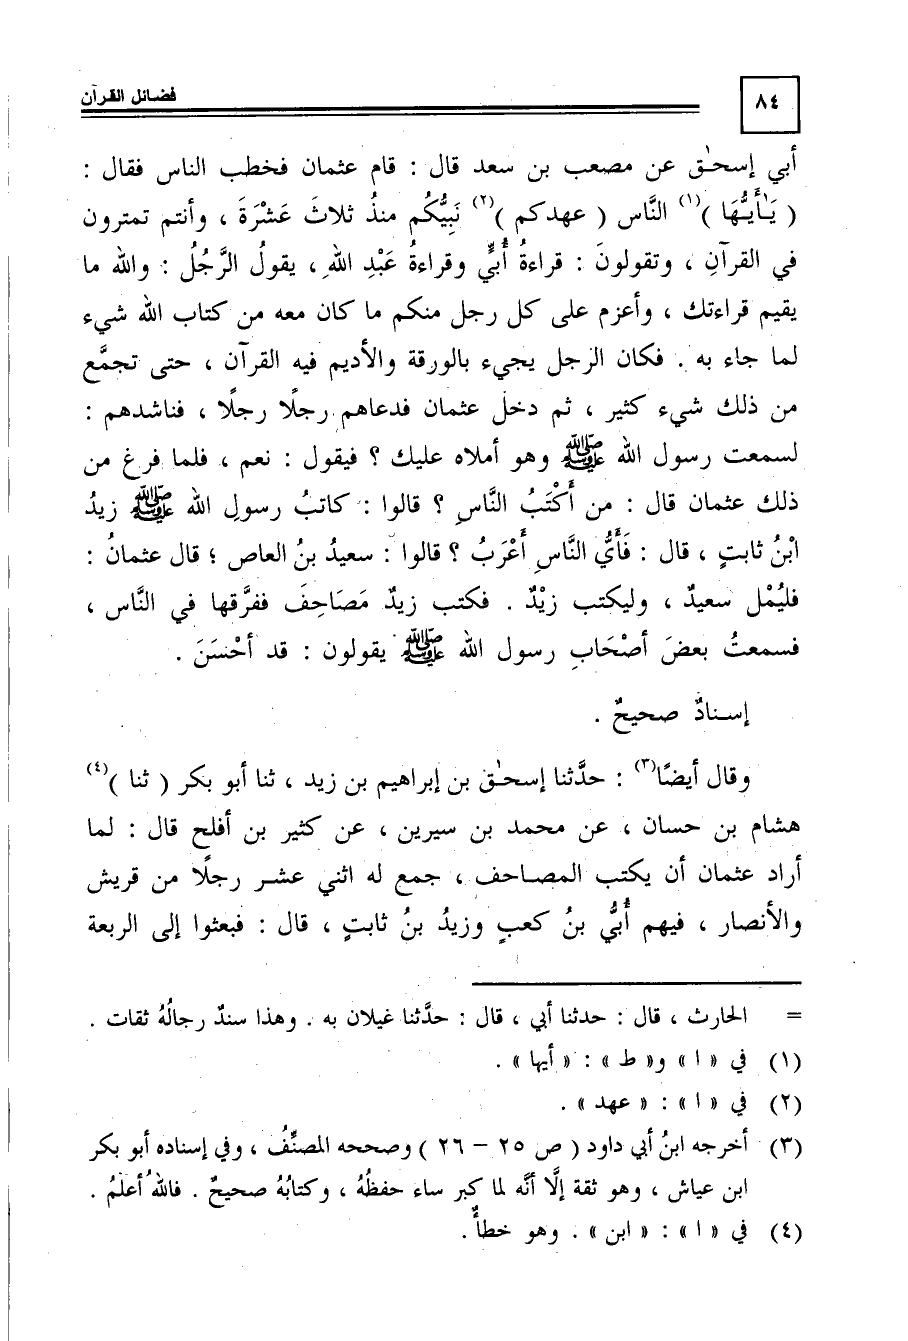 فضائل القرآن
٨٤
أبي إسحـٰق عن مصعب بن سعد قال : قام عثمان فخطب الناس فقال :
( يَـٰأَيـُّهَا )(١) النَّاس ( عهدكم )(٢) نَبِيُّكُم منذُ ثلاثَ عَشْرَةَ ، وأنتم تمترون
في القرآنِ ، وتقولونَ : قراءةُ أُبيٍّ وقراءةُ عَبْدِ اللهِ ، يقولُ الرَّجُلُ : والله ما
يقيم قراءتك ، وأعزم على كل رجل منكم ما كان معه من كتاب الله شيء
لما جاء به . فكان الرجل يجيء بالورقة والأديم فيه القرآن ، حتى تجمَّع
من ذلك شيء كثير ، ثم دخل عثمان فدعاهم رجلًا رجلًا ، فناشدهم :
لسمعت رسول الله ﷺ وهو أملاه عليك ؟ فيقول : نعم ، فلما فرغ من
ذلك عثمان قال : من أَكْتَبُ النَّاسِ ؟ قالوا : كاتبُ رسولِ الله ﷺ زيدُ
ابْنُ ثابتٍ ، قال : فَأَيُّ النَّاسِ أَعْرَبُ ؟ قالوا : سعيدُ بنُ العاص ؛ قال عثمانُ :
فليُمْل سعيدٌ ، وليكتب زيْدٌ . فكتب زيدٌ مَصَاحِفَ ففرَّقها في النَّاس ،
فسمعتُ بعضَ أصْحَابِ رسول الله ﷺ يقولون : قد أحْسَنَ .
إسـنادٌ صحيحٌ .
وقال أيضًا(٣) : حدَّثنا إسحـٰق بن إبراهيم بن زيد ، ثنا أبو بكر ( ثنا )(٤)
هشام بن حسان ، عن محمد بن سيرين ، عن كثير بن أفلح قال : لما
أراد عثمان أن يكتب المصـاحف ، جمع له اثني عشـر رجلًا من قريش
والأنصار ، فيهم أُبيُّ بنُ كعبٍ وزيدُ بنُ ثابتٍ ، قال : فبعثوا إلى الربعة
= الحارث ، قال : حدثنا أبي ، قال : حدَّثنا غيلان به . وهذا سندٌ رجالُهُ ثقات .
(١) في « ا » و« ط » : « أيها » .
(٢) في « ا » : « عهد » .
(٣) أخرجه ابنُ أبي داود ( ص ٢٥ – ٢٦ ) وصححه المصنِّفُ ، وفي إسناده أبو بكر
ابن عياش ، وهو ثقة إلَّا أنَّه لما كبر ساء حفظُهُ ، وكتابُهُ صحيحٌ . فاللهُ أعلمُ .
(٤) في « ا » : « ابن » . وهو خطأٌ .